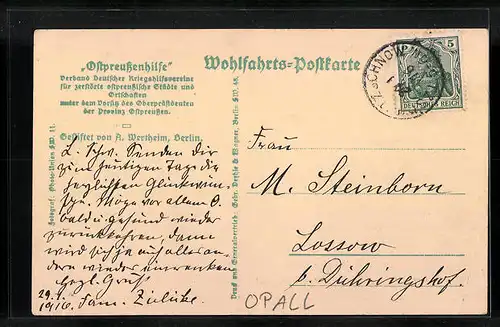 „Ostpreußenhilfe"
Verband Deutscher Kriegshilfsvereine
für zerstörte ostpreußische Städte und
Ortschaften
unter dem Vorsitz des Oberpräsidenten
der Provinz Ostpreußen.
Gestiftet von A. Wertheim, Berlin.
Wohlfahrts-Postkarte
5
DEUTSCHES REICH
Fotogr. Photo-Union SW. 11.
Druck und Generalvertrieb: Gebr. Wagner, Berlin SW. 48.
L. Schw. Senden Dir
zum heutigen Tage die
herzlichsten Glückwün-
sche. Möge vor allem O.
bald u. gesund wieder
zurückkehren, dann
wird sich ja auch alles an-
dere wieder einrenken
Hrzl. Gruß
29.1.
1916. Fam. Zülicke.
Frau
M. Steinborn
Lossow
b. Dühringshof.
OPALL